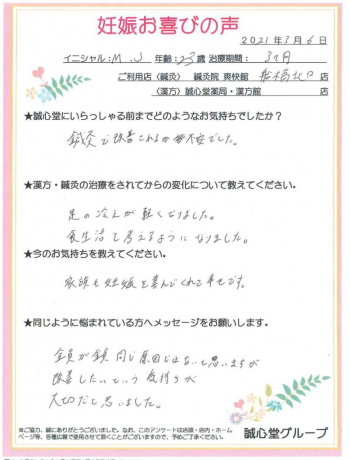 妊娠お喜びの声
2021年3月6日
イニシャル:M.J 年齢:23歳 治療期間: 3ヶ月
ご利用店〈鍼灸〉 鍼灸院 爽快館 船橋北口 店
〈漢方〉誠心堂薬局・漢方館 店
★誠心堂にいらっしゃる前までどのようなお気持ちでしたか?
鍼灸で改善されるか不安でした。
★漢方・鍼灸の治療をされてからの変化について教えてください。
足の冷えが軽くなりました。
食生活を考えるようになりました。
★今のお気持ちを教えてください。
家族も妊娠を喜んでくれて幸せです。
★同じように悩まれている方へメッセージをお願いします。
全員が同じ原因ではないと思いますが
改善したいという気持ちが
大切だと思いました。
※ご協力、誠にありがとうございました。なお、このアンケートは店頭・店内・ホーム
ページ等、各種広告で使用させて頂くことがございますので、予めご了承ください。
誠心堂グループ